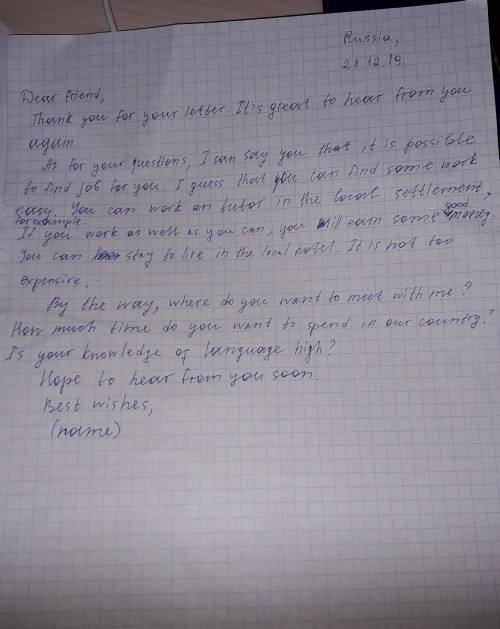 Russia,
28.12.19.
Dear friend,
Thank you for your letter. It's great to hear from you
again.
As for your questions, I can say you that it is possible
to find job for you. I guess that you can find some work
easy. You can work on tutor in the local settlement,
for example.
If you work as well as you can, you will earn some good money.
You can stay to live in the local hotel. It is not too
expensive.
By the way, where do you want to meet with me?
How much time do you want to spend in our country?
Is your knowledge of language high?
Hope to hear from you soon.
Best wishes,
(name)